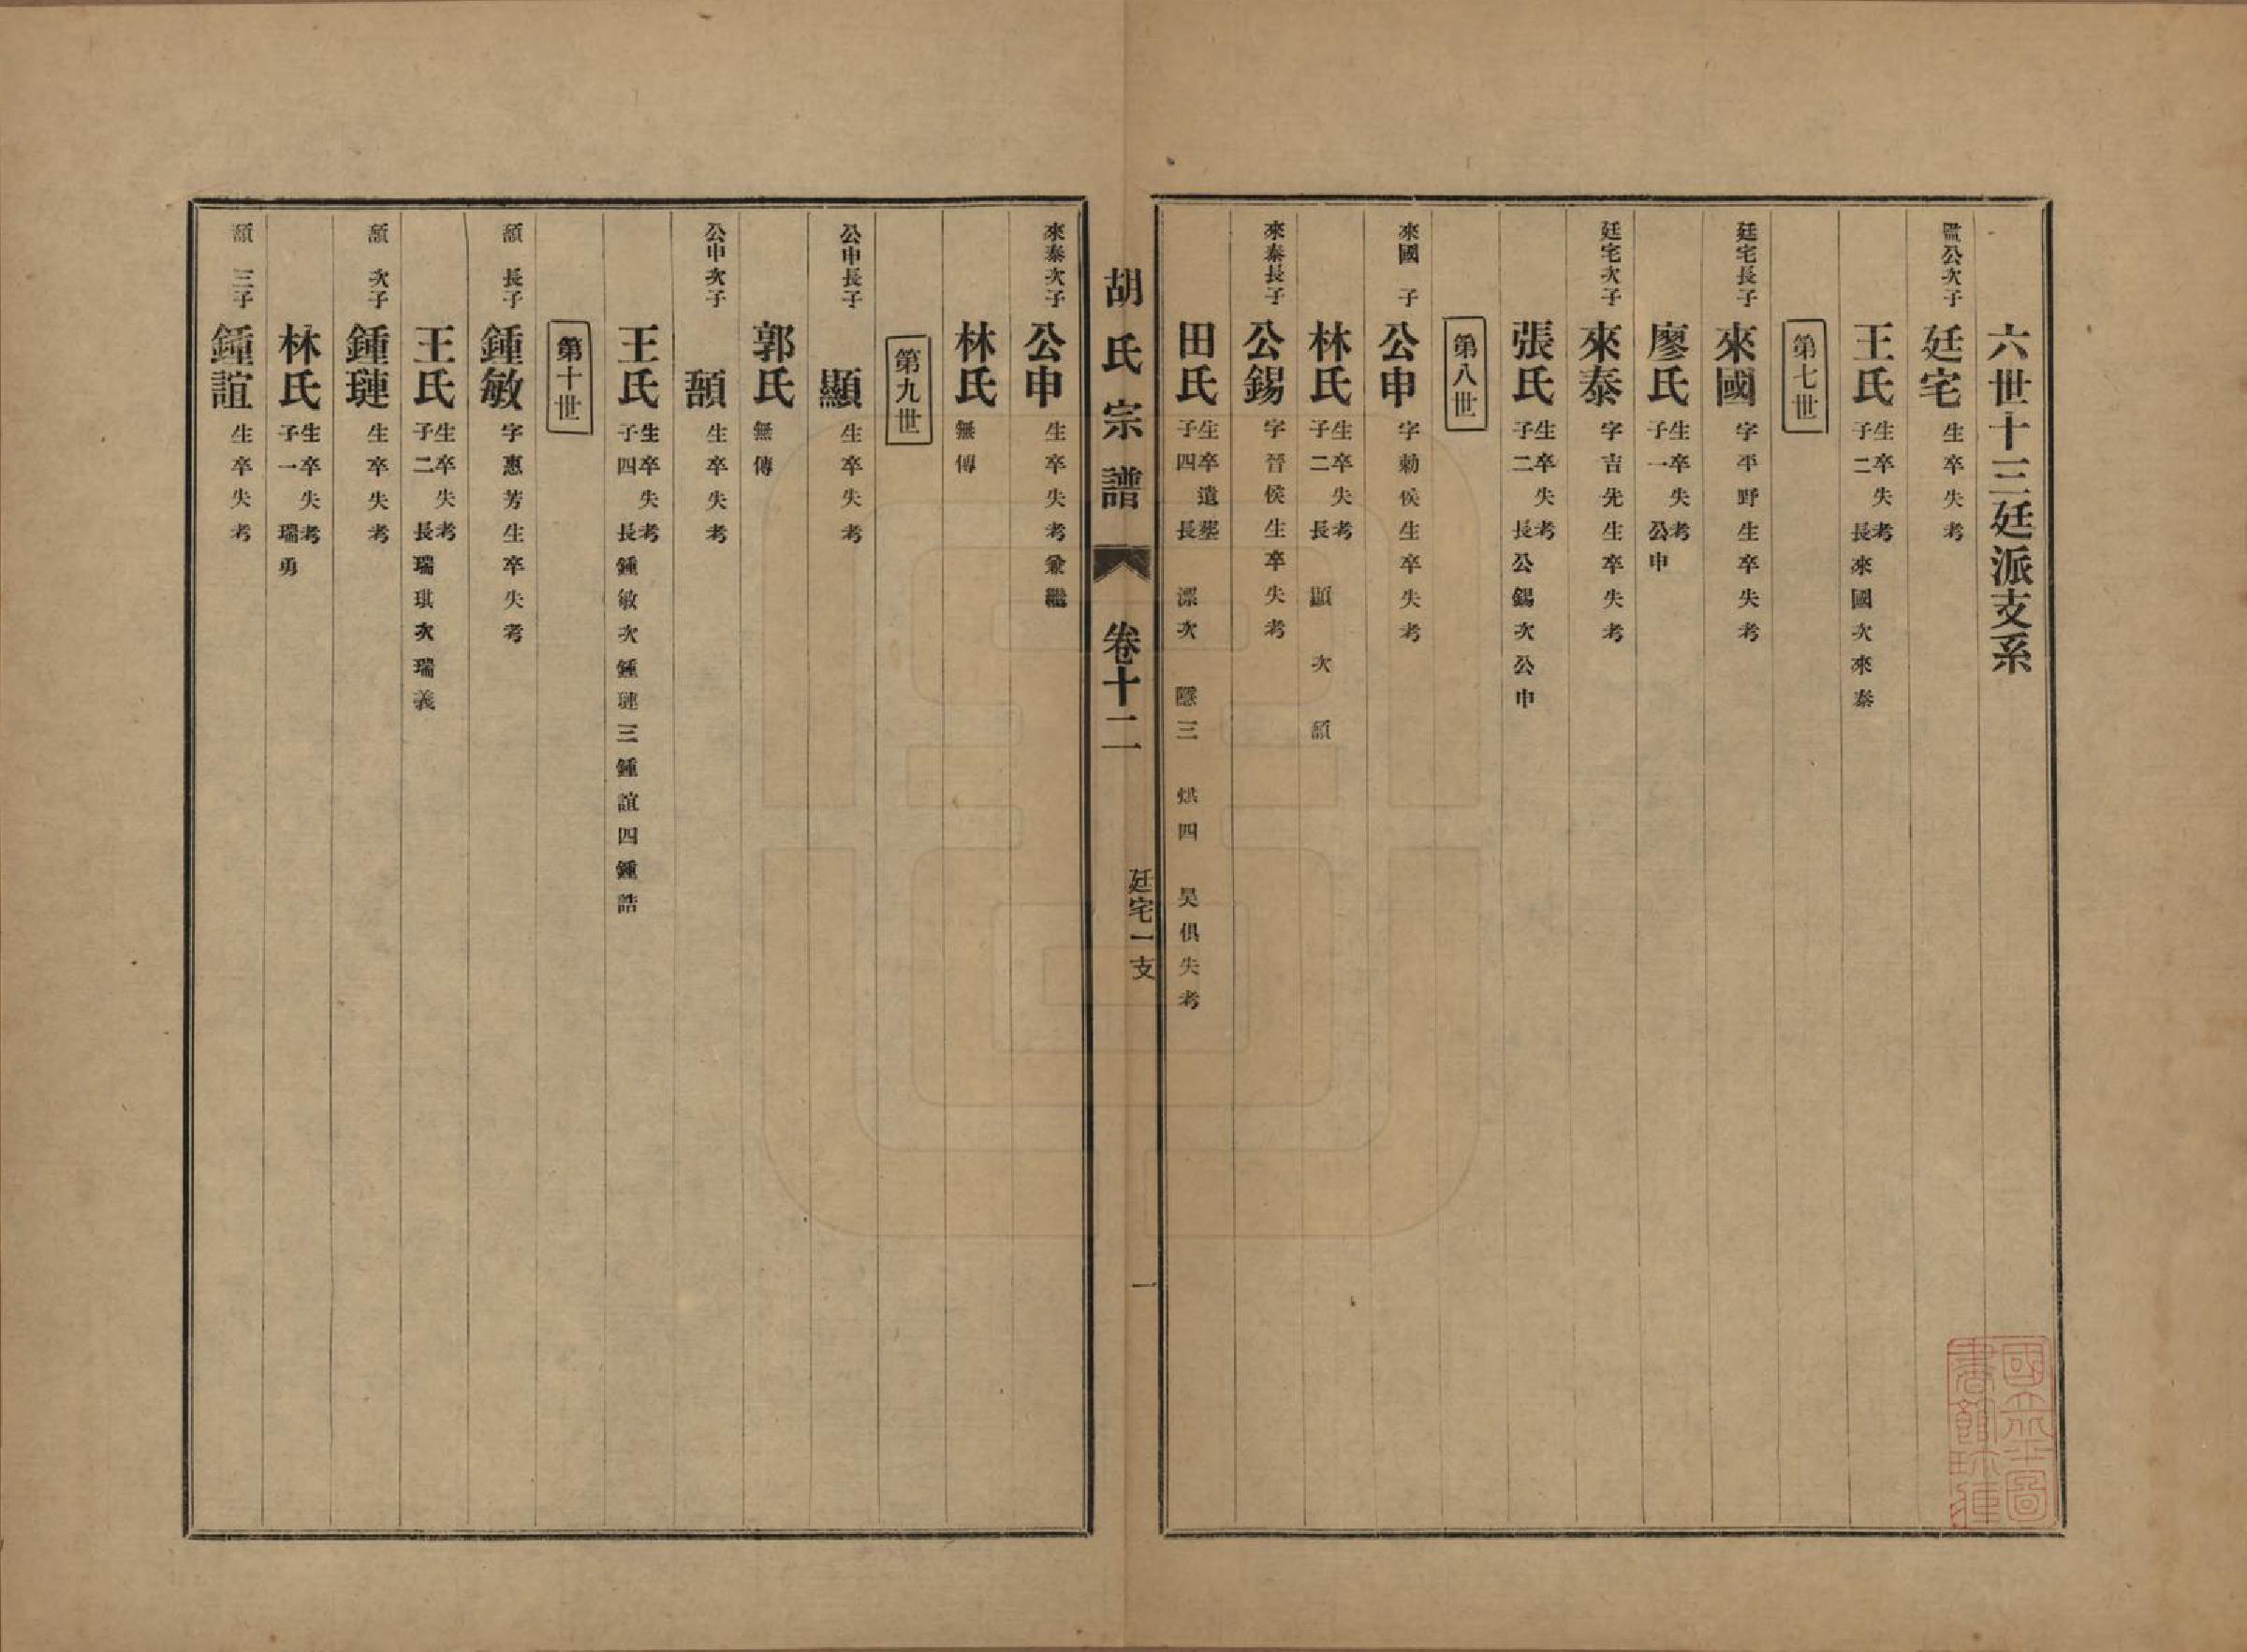 六世十三廷派支系
公次子 廷宅 生卒失考
王氏 生卒失考 子二 長來國次來泰
第七世
廷宅長子 來國 字平野生卒失考
廖氏 生卒失考 子一 公申
廷宅次子 來泰 字吉先生卒失考
張氏 生卒失考 子二 長公錫次公申
第八世
來國子 公申 字勅侯生卒失考
林氏 生卒失考 子二 長顯次頟
來泰長子 公錫 字晉侯生卒失考
田氏 生卒遺塟 子四 長漂次隱三烘四昊俱失考
胡氏宗譜 卷十二 廷宅一支 一
來泰次子 公申 生卒失考兼繼
林氏 無傳
第九世
公申長子 顯 生卒失考
郭氏 無傳
公申次子 頟 生卒失考
王氏 生卒失考 子四 長鍾敏次鍾璉三鍾誼四鍾誥
第十世
頟長子 鍾敏 字惠芳生卒失考
王氏 生卒失考 子二 長瑞琪次瑞義
頟次子 鍾璉 生卒失考
林氏 生卒失考 子一 瑞勇
頟三子 鍾誼 生卒失考
國立北平圖書館珍藏